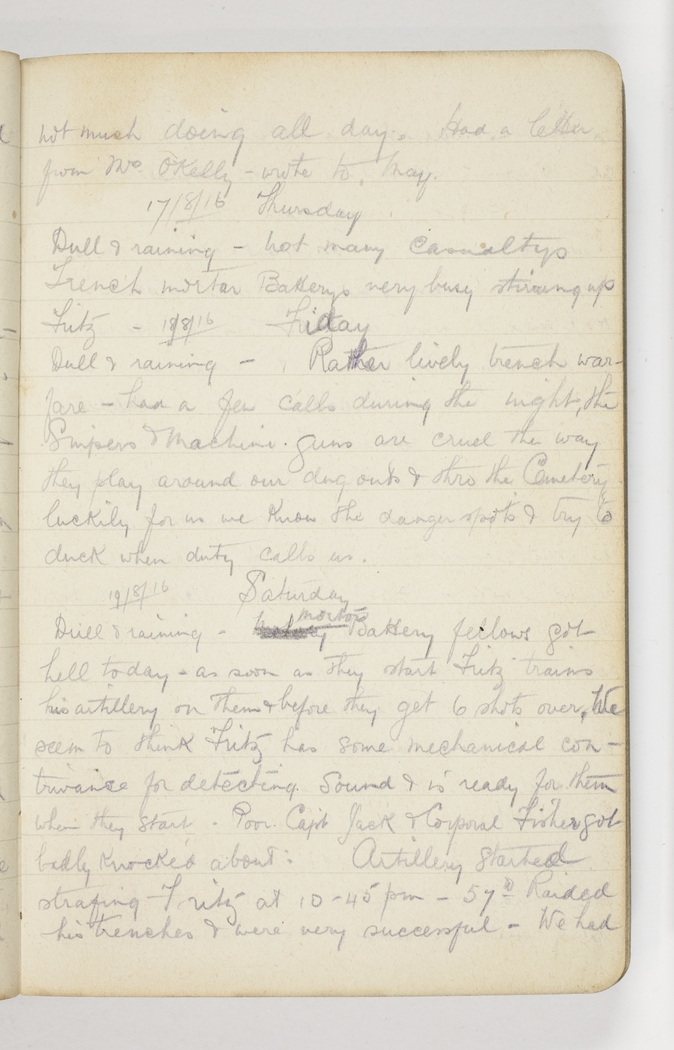 not much doing all day. Had a letter
from Mrs O'Kelly - wrote to May.
17/8/16 Thursday
Dull & raining - not many casualtys
Trench mortar Batterys very busy stirring up
Fritz - 18/8/16 Friday
Dull & raining - Rather lively trench war-
fare - had a few calls during the night, the
Snipers & Machine guns are cruel the way
they play around our dug outs & thro the Cemetery
luckily for us we know the danger spots & try to
duck when duty calls us.
19/8/16 Saturday
Dull & raining - mortar Battery fellows got
hell today - as soon as they start Fritz trains
his artillery on them & before they get 6 shots over, We
seem to think Fritz has some mechanical con-
trivance for detecting Sound & is ready for them
when they start. Poor Capt Jack & Corporal Fisher got
badly knocked about. Artillery started
strafing Fritz at 10-45 pm - 57th Raided
his trenches & were very successful - We had